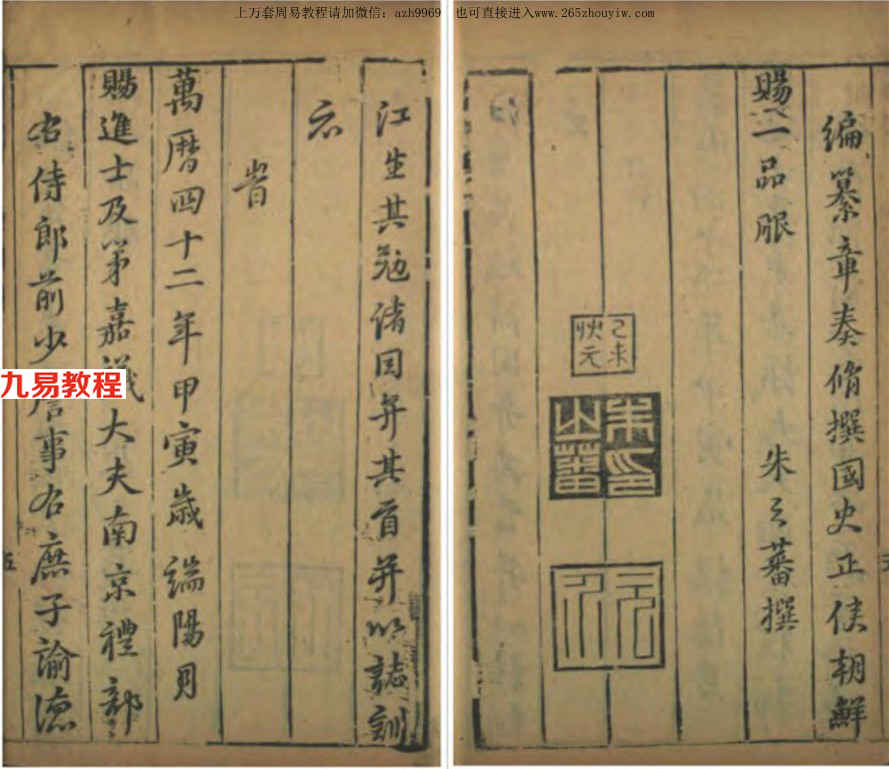 上万套周易教程请加微信：azh9969 也可直接进入www.265zhouyiw.com
江生其勉諸因弁其首并以誌訓
云
旹
萬曆四十二年甲寅歲端陽月
賜進士及第嘉議大夫南京禮部
右侍郎前少詹事右庶子諭德
九易教程
編纂章奏脩撰國史正使朝鮮
賜一品服 朱之蕃撰
乙未狀元
朱印之蕃